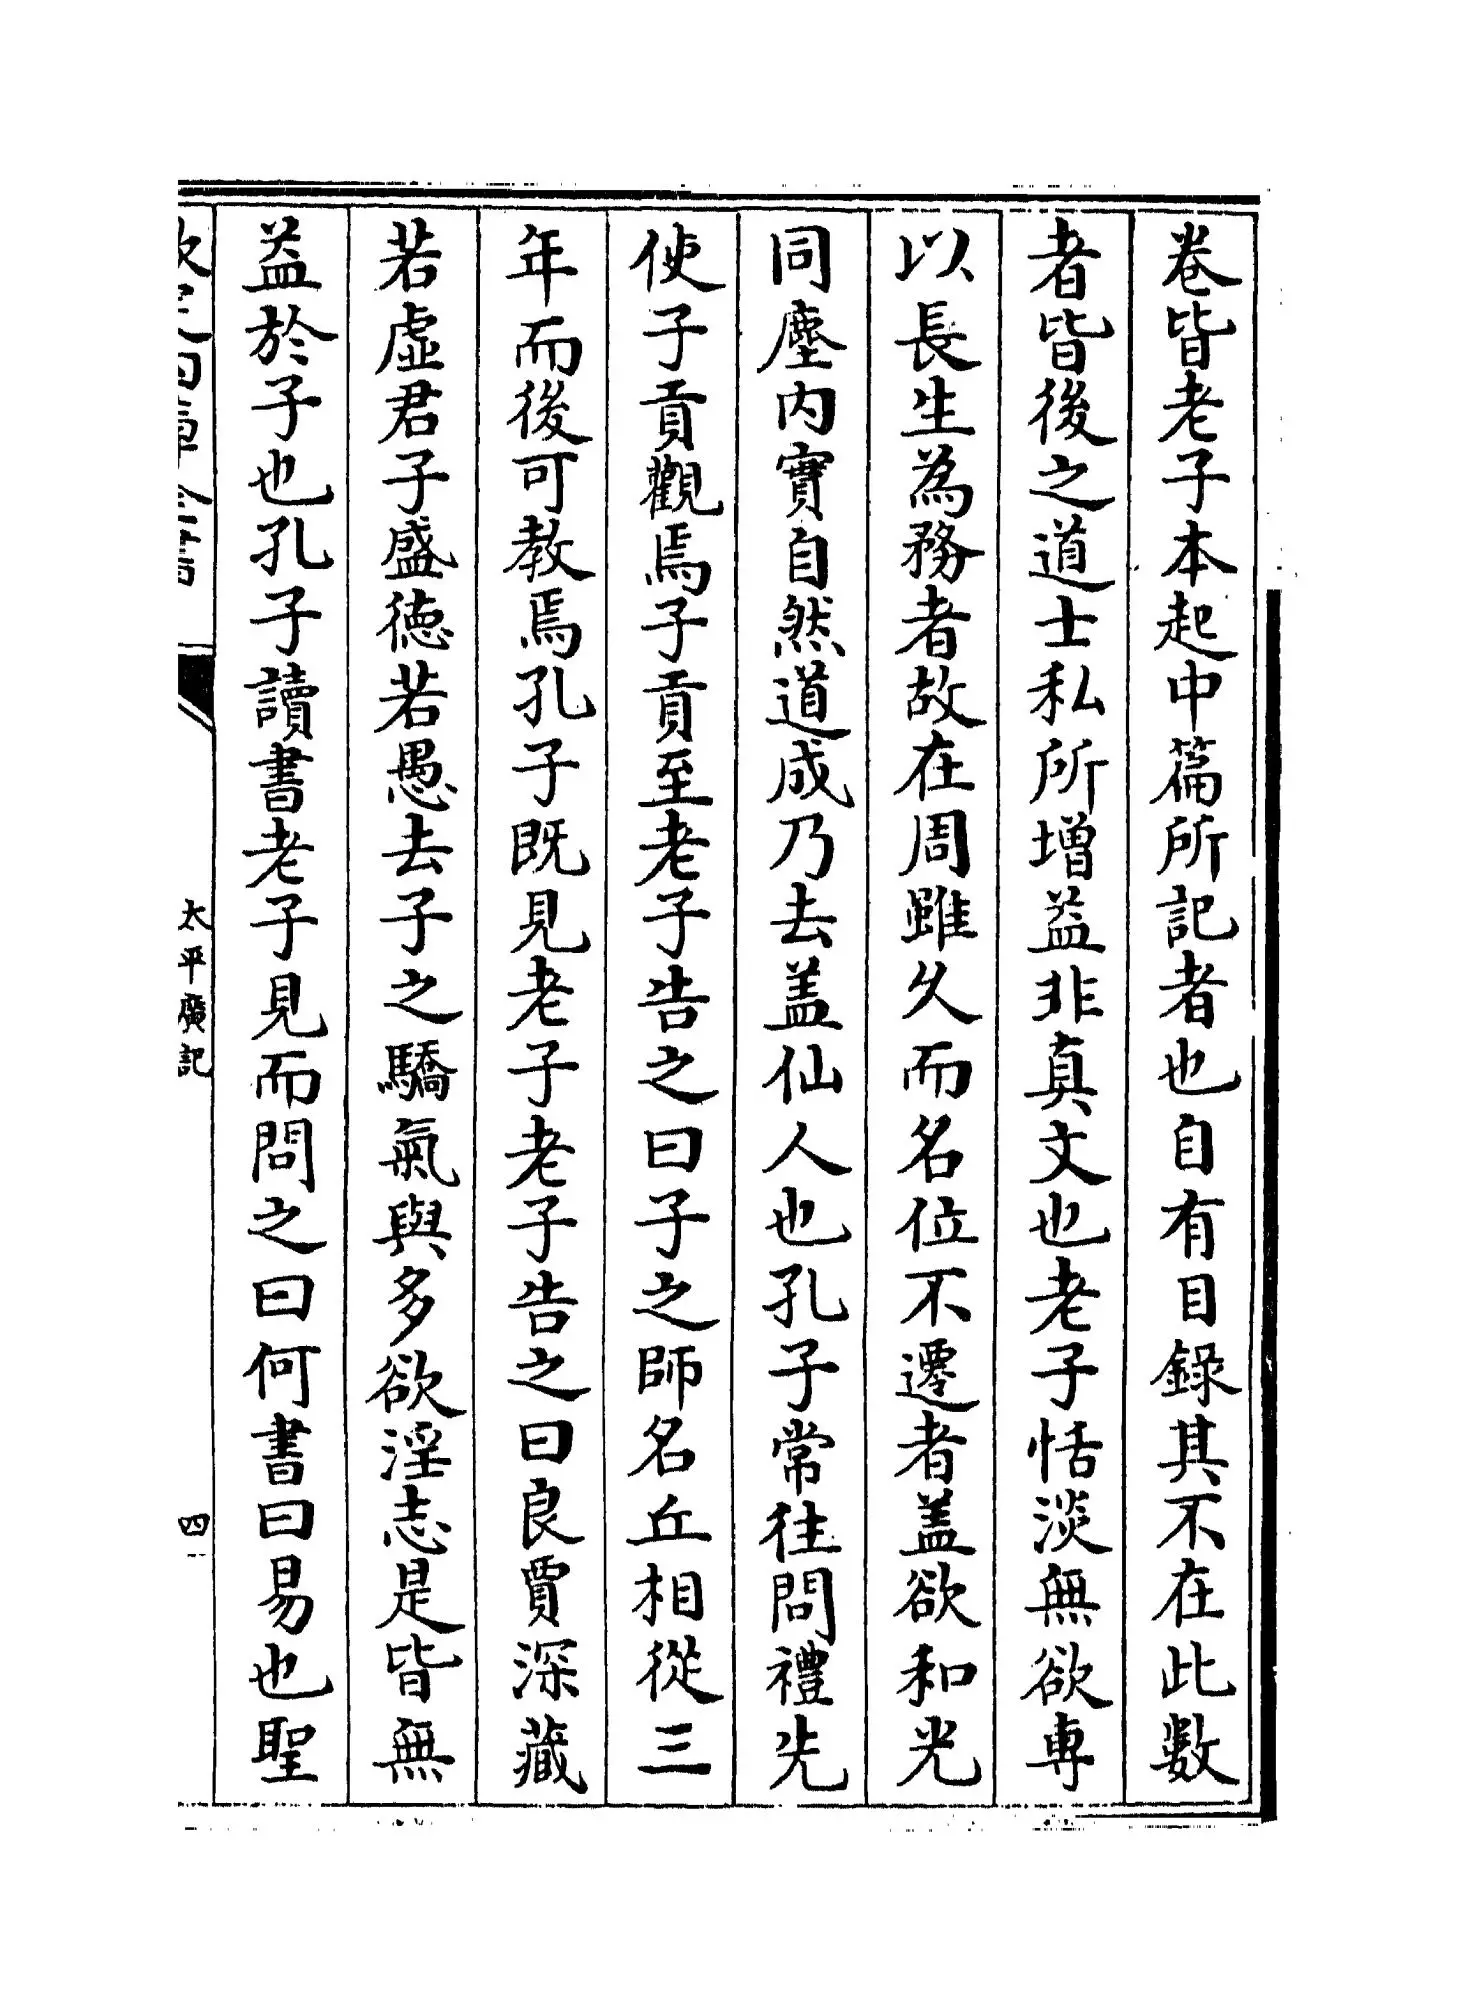 卷皆老子本起中篇所記者也自有目錄其不在此數
者皆後之道士私所增益非真文也老子恬淡無欲專
以長生為務者故在周雖久而名位不遷者盖欲和光
同塵内實自然道成乃去盖仙人也孔子常往問禮先
使子貢觀焉子貢至老子告之曰子之師名丘相從三
年而後可教焉孔子既見老子老子告之曰良賈深藏
若虛君子盛徳若愚去子之驕氣與多欲淫志是皆無
益於子也孔子讀書老子見而問之曰何書曰易也聖
欽定四庫全書
太平廣記
四